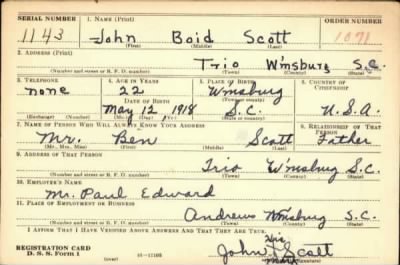 SERIAL NUMBER 1. NAME (Print) ORDER NUMBER
1143 John Boid Scott 1071
(First) (Middle) (Last)
2. ADDRESS (Print)
Trio W'msburg S.C.
(Number and street or R. F. D. number) (Town) (County) (State)
3. TELEPHONE 4. AGE IN YEARS 5. PLACE OF BIRTH 6. COUNTRY OF CITIZENSHIP
none 22 Wmsburg
DATE OF BIRTH (Town or county)
May 12, 1918 S.C. U.S.A.
(Exchange) (Number) (Mo.) (Day) (Yr.) (State or country)
7. NAME OF PERSON WHO WILL ALWAYS KNOW YOUR ADDRESS 8. RELATIONSHIP OF THAT PERSON
Mr. Ben Scott Father
(Mr., Mrs., Miss) (First) (Middle) (Last)
9. ADDRESS OF THAT PERSON
Trio W'msburg S.C.
(Number and street or R. F. D. number) (Town) (County) (State)
10. EMPLOYER'S NAME
Mr. Paul Edward
11. PLACE OF EMPLOYMENT OR BUSINESS
Andrews Wmsburg S.C.
(Number and street or R. F. D. number) (Town) (County) (State)
I AFFIRM THAT I HAVE VERIFIED ABOVE ANSWERS AND THAT THEY ARE TRUE.
His
REGISTRATION CARD John X Scott
D. S. S. Form 1 (over) 16—17105 Mark